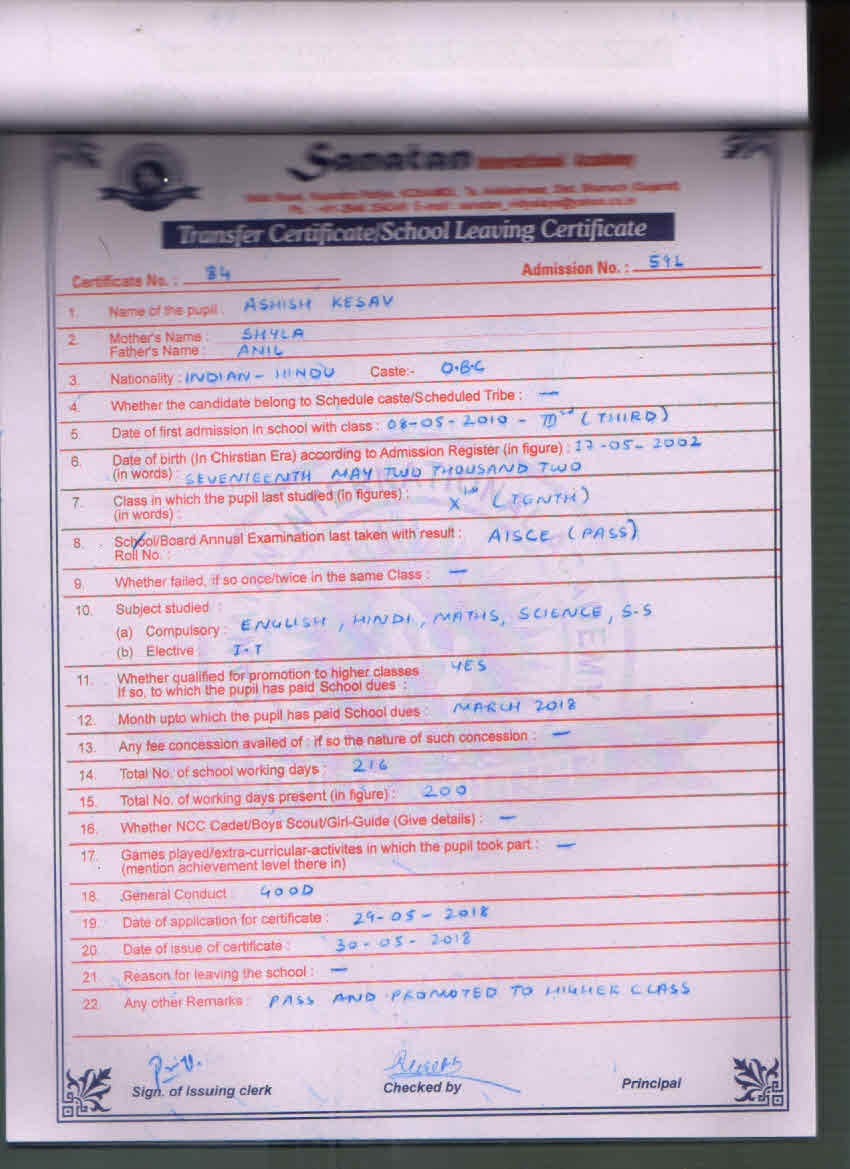 Sanatan International Academy
Transfer Certificate/School Leaving Certificate
Certificate No. : 84 Admission No. : 592
1. Name of the pupil : ASHISH KESAV
2. Mother's Name : SHYLA
Father's Name : ANIL
3. Nationality : INDIAN - HINDU Caste:- O.B.C
4. Whether the candidate belong to Schedule caste/Scheduled Tribe : —
5. Date of first admission in school with class : 08-05-2010 - IIIrd (THIRD)
6. Date of birth (In Chirstian Era) according to Admission Register (in figure) : 17-05-2002
(in words) : SEVENTEENTH MAY TWO THOUSAND TWO
7. Class in which the pupil last studied (in figures) : Xth (TENTH)
(in words) :
8. School/Board Annual Examination last taken with result : AISCE (PASS)
Roll No. :
9. Whether failed, if so once/twice in the same Class : —
10. Subject studied :
(a) Compulsory : ENGLISH, HINDI, MATHS, SCIENCE, S.S
(b) Elective : I.T
11. Whether qualified for promotion to higher classes YES
If so, to which the pupil has paid School dues :
12. Month upto which the pupil has paid School dues : MARCH 2018
13. Any fee concession availed of : if so the nature of such concession : —
14. Total No. of school working days : 216
15. Total No. of working days present (in figure) : 200
16. Whether NCC Cadet/Boys Scout/Girl-Guide (Give details) : —
17. Games played/extra-curricular-activites in which the pupil took part : —
(mention achievement level there in)
18. General Conduct : GOOD
19. Date of application for certificate : 29-05-2018
20. Date of issue of certificate : 30-05-2018
21. Reason for leaving the school : —
22. Any other Remarks : PASS AND PROMOTED TO HIGHER CLASS
Sign. of issuing clerk Checked by Principal